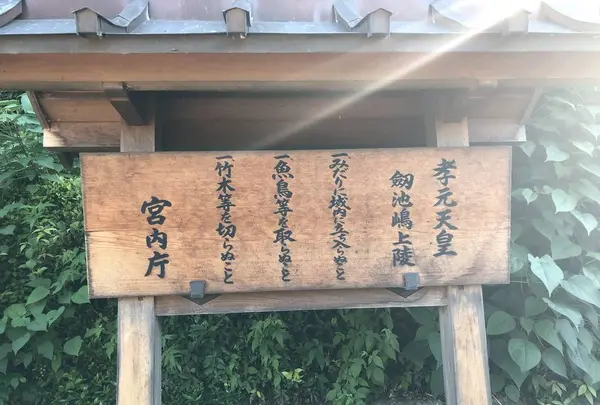 孝元天皇
劔池嶋上陵
一みだりに域内に立入らぬこと
一魚鳥等を取らぬこと
一竹木等を切らぬこと
宮内庁